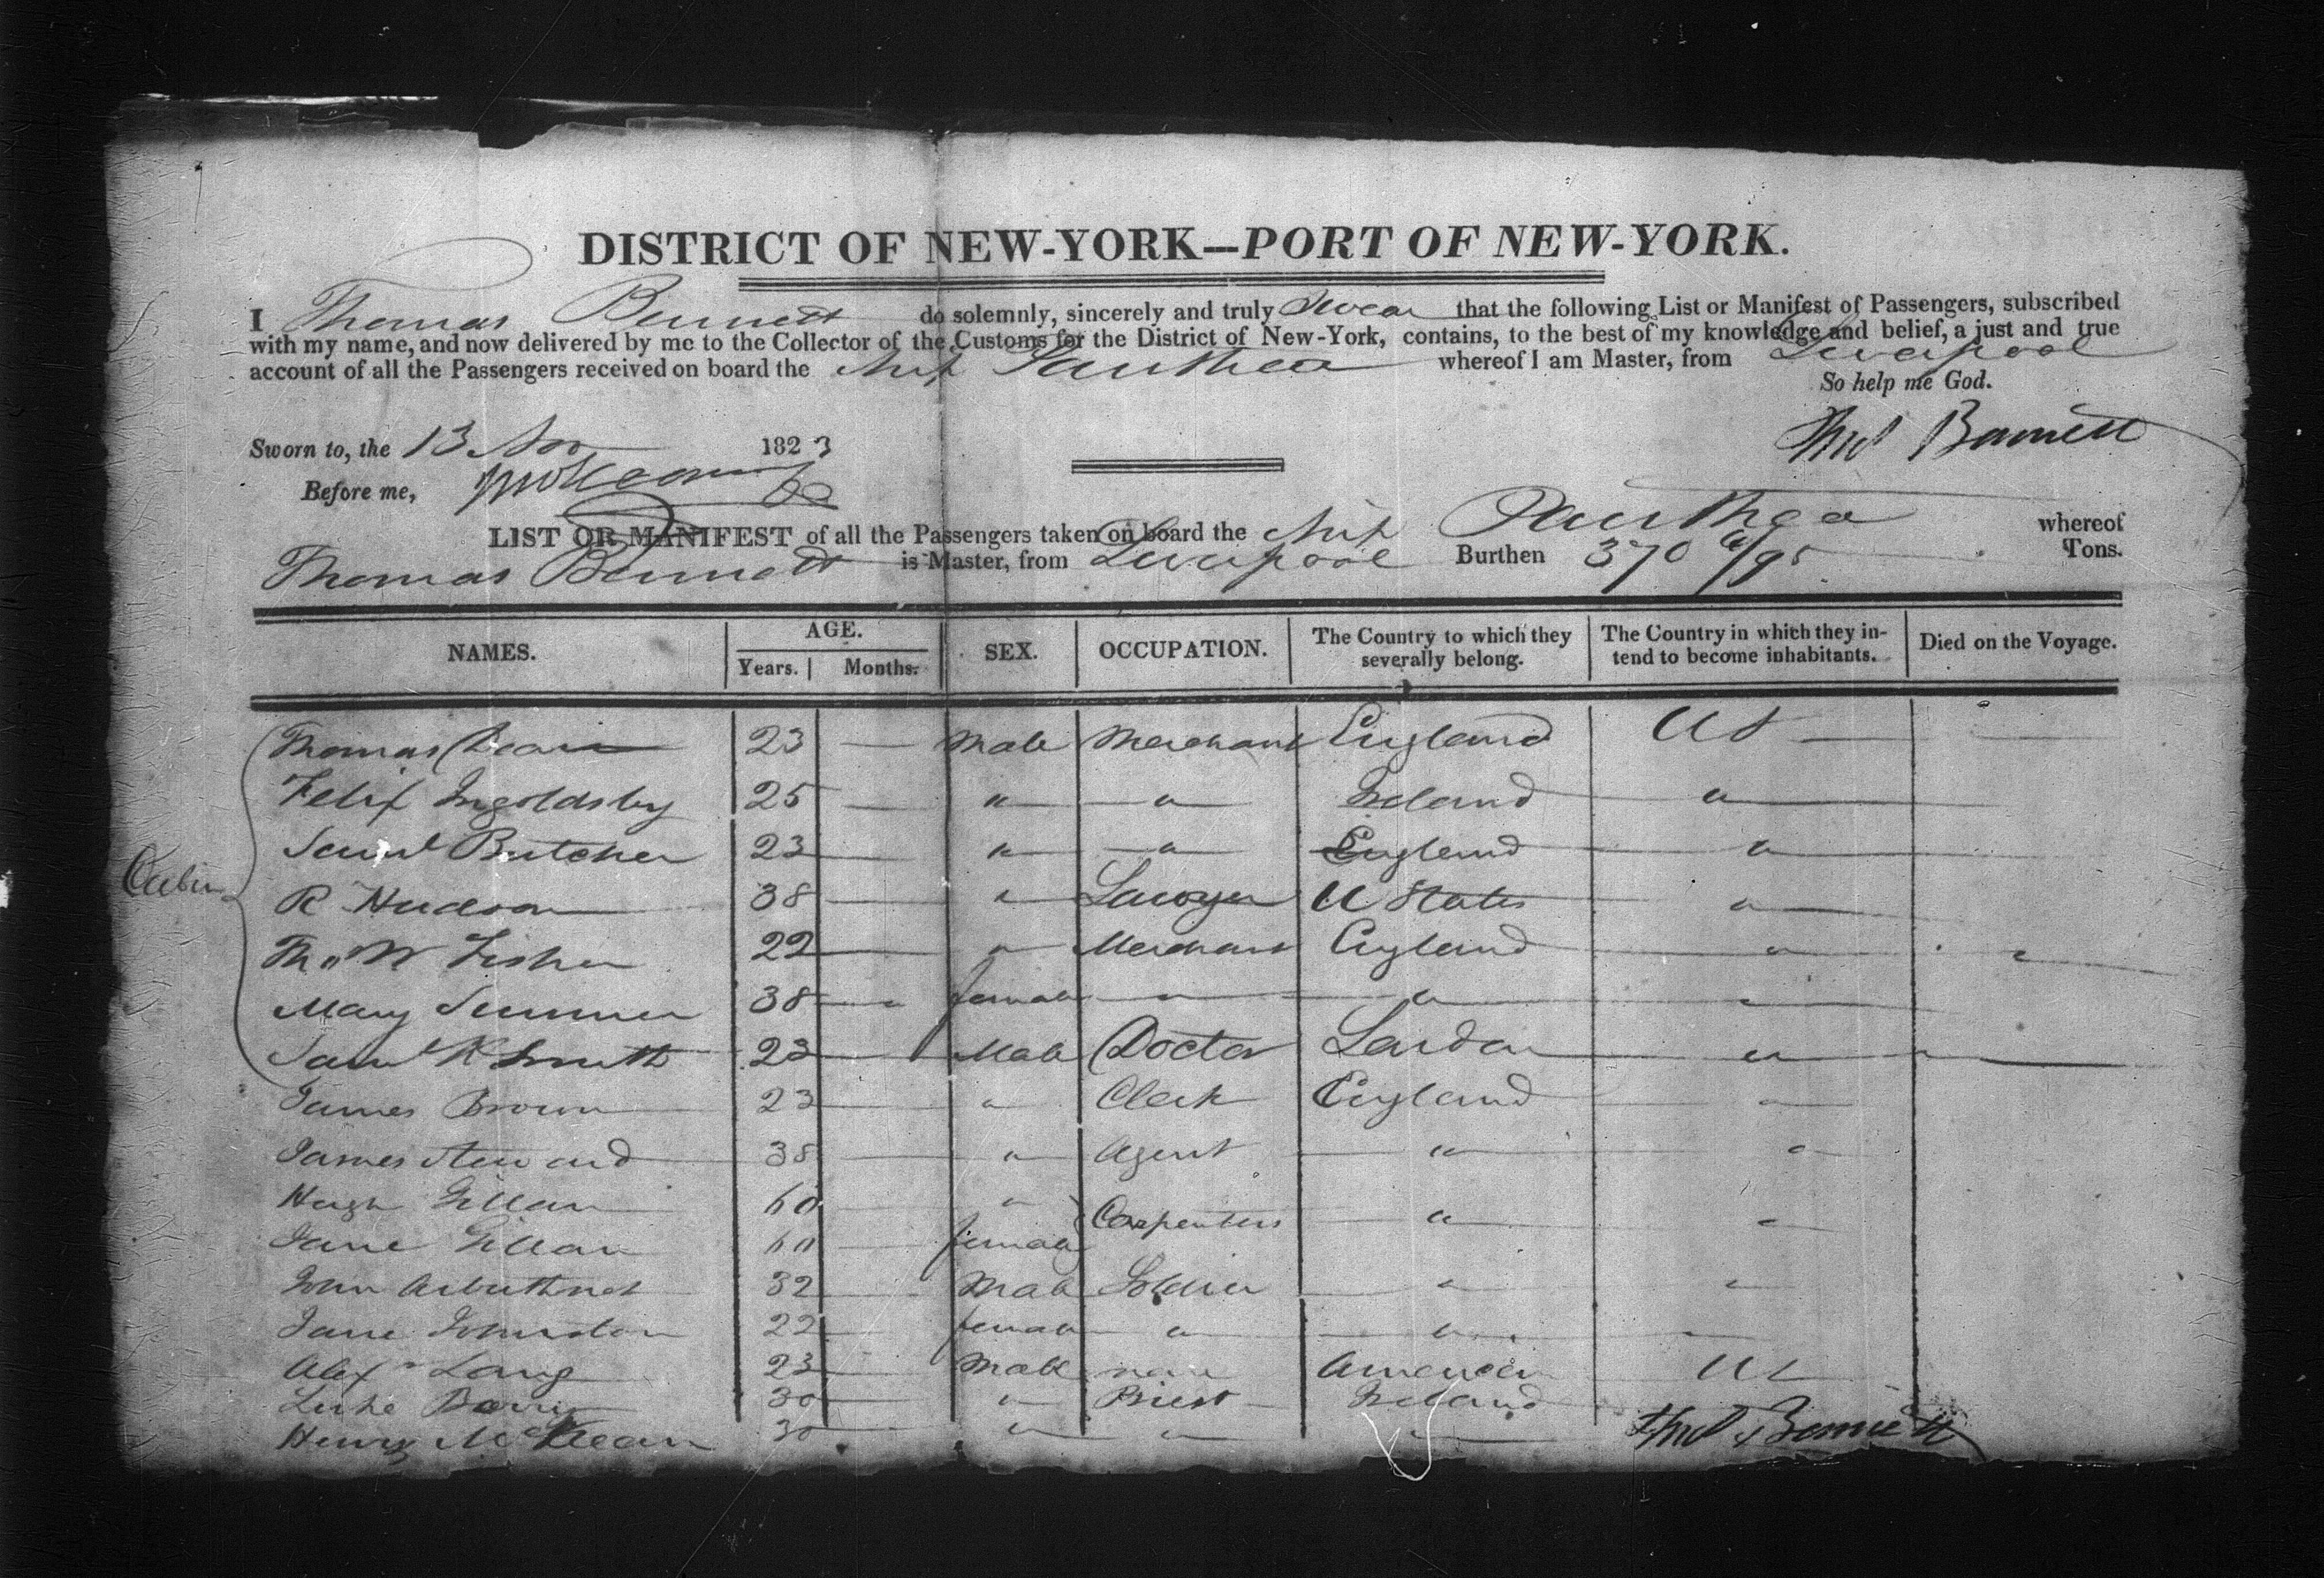 DISTRICT OF NEW-YORK—PORT OF NEW-YORK.
I Thomas Bennett do solemnly, sincerely and truly Swear that the following List or Manifest of Passengers, subscribed
with my name, and now delivered by me to the Collector of the Customs for the District of New-York, contains, to the best of my knowledge and belief, a just and true
account of all the Passengers received on board the Ship Panthea whereof I am Master, from Liverpool
So help me God.
Sworn to, the 13 Nov 1823
Thos Bennett
Before me,
LIST OR MANIFEST of all the Passengers taken on board the Ship Panthea whereof
Thomas Bennett is Master, from Liverpool Burthen 370 /95 Tons.
NAMES. AGE. Years. Months. SEX. OCCUPATION. The Country to which they severally belong. The Country in which they intend to become inhabitants. Died on the Voyage.
Cabin
Thomas Dean 23 — Male Merchant England US —
Felix Ingoldsby 25 — " " Ireland "
Saml Butcher 23 — " " England "
R Hudson 38 — " Lawyer U States "
Tho W Fisher 22 — " Merchant England "
Mary Sumner 38 — female " " "
Saml K Smith 23 — Male Doctor London "
James Brown 23 — " Clerk England "
James Steward 38 — " Agent " "
Hugh Gillan 60 — " Carpenters " "
Jane Gillan 60 — female
John Arbuthnot 32 — Male Soldier " "
Jane Johnston 22 — female " "
Alexr Lang 23 — Male none American US
Luke Barry 30 — " Priest Ireland
Henry McKean 30 — " " "
Thos Bennett